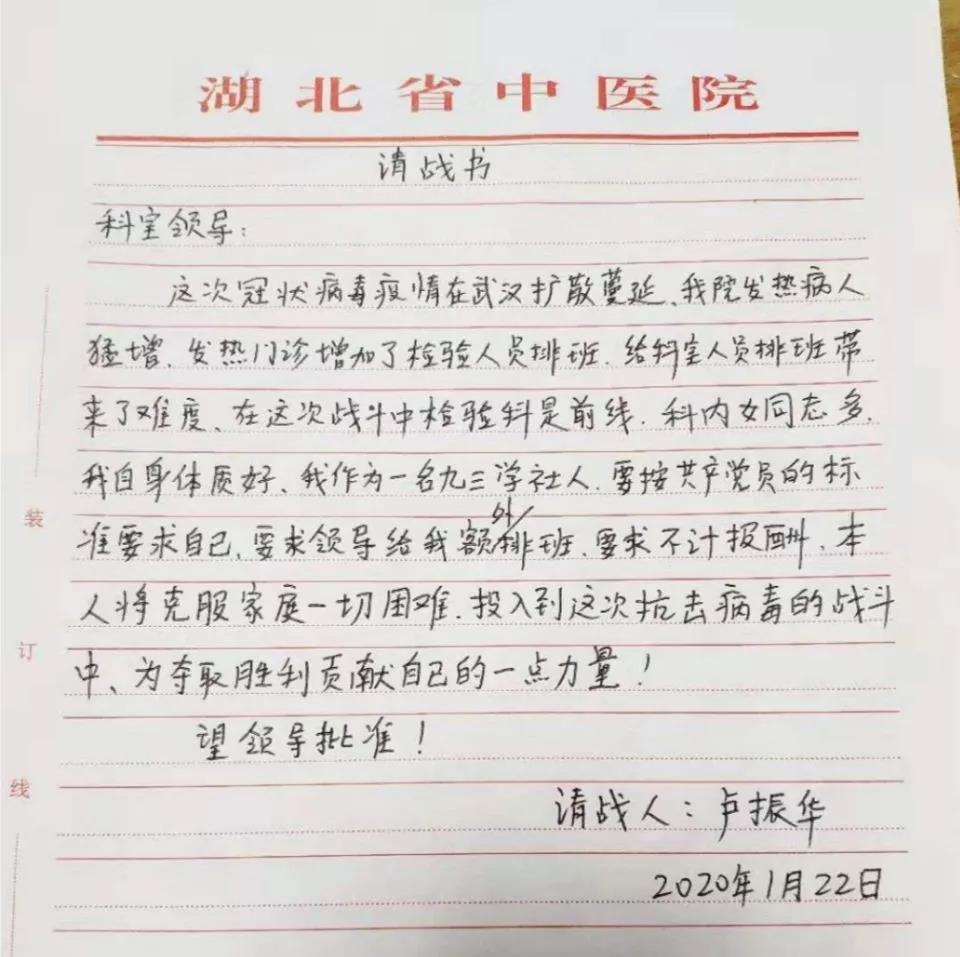 湖北省中医院
请战书
科室领导：
这次冠状病毒疫情在武汉扩散蔓延、我院发热病人
猛增、发热门诊增加了检验人员排班、给科室人员排班带
来了难度、在这次战斗中检验科是前线、科内女同志多、
我自身体质好、我作为一名九三学社人、要按共产党员的标
准要求自己、要求领导给我额外排班、要求不计报酬、本
人将克服家庭一切困难、投入到这次抗击病毒的战斗
中、为夺取胜利贡献自己的一点力量！
望领导批准！
请战人：卢振华
2020年1月22日
装
订
线